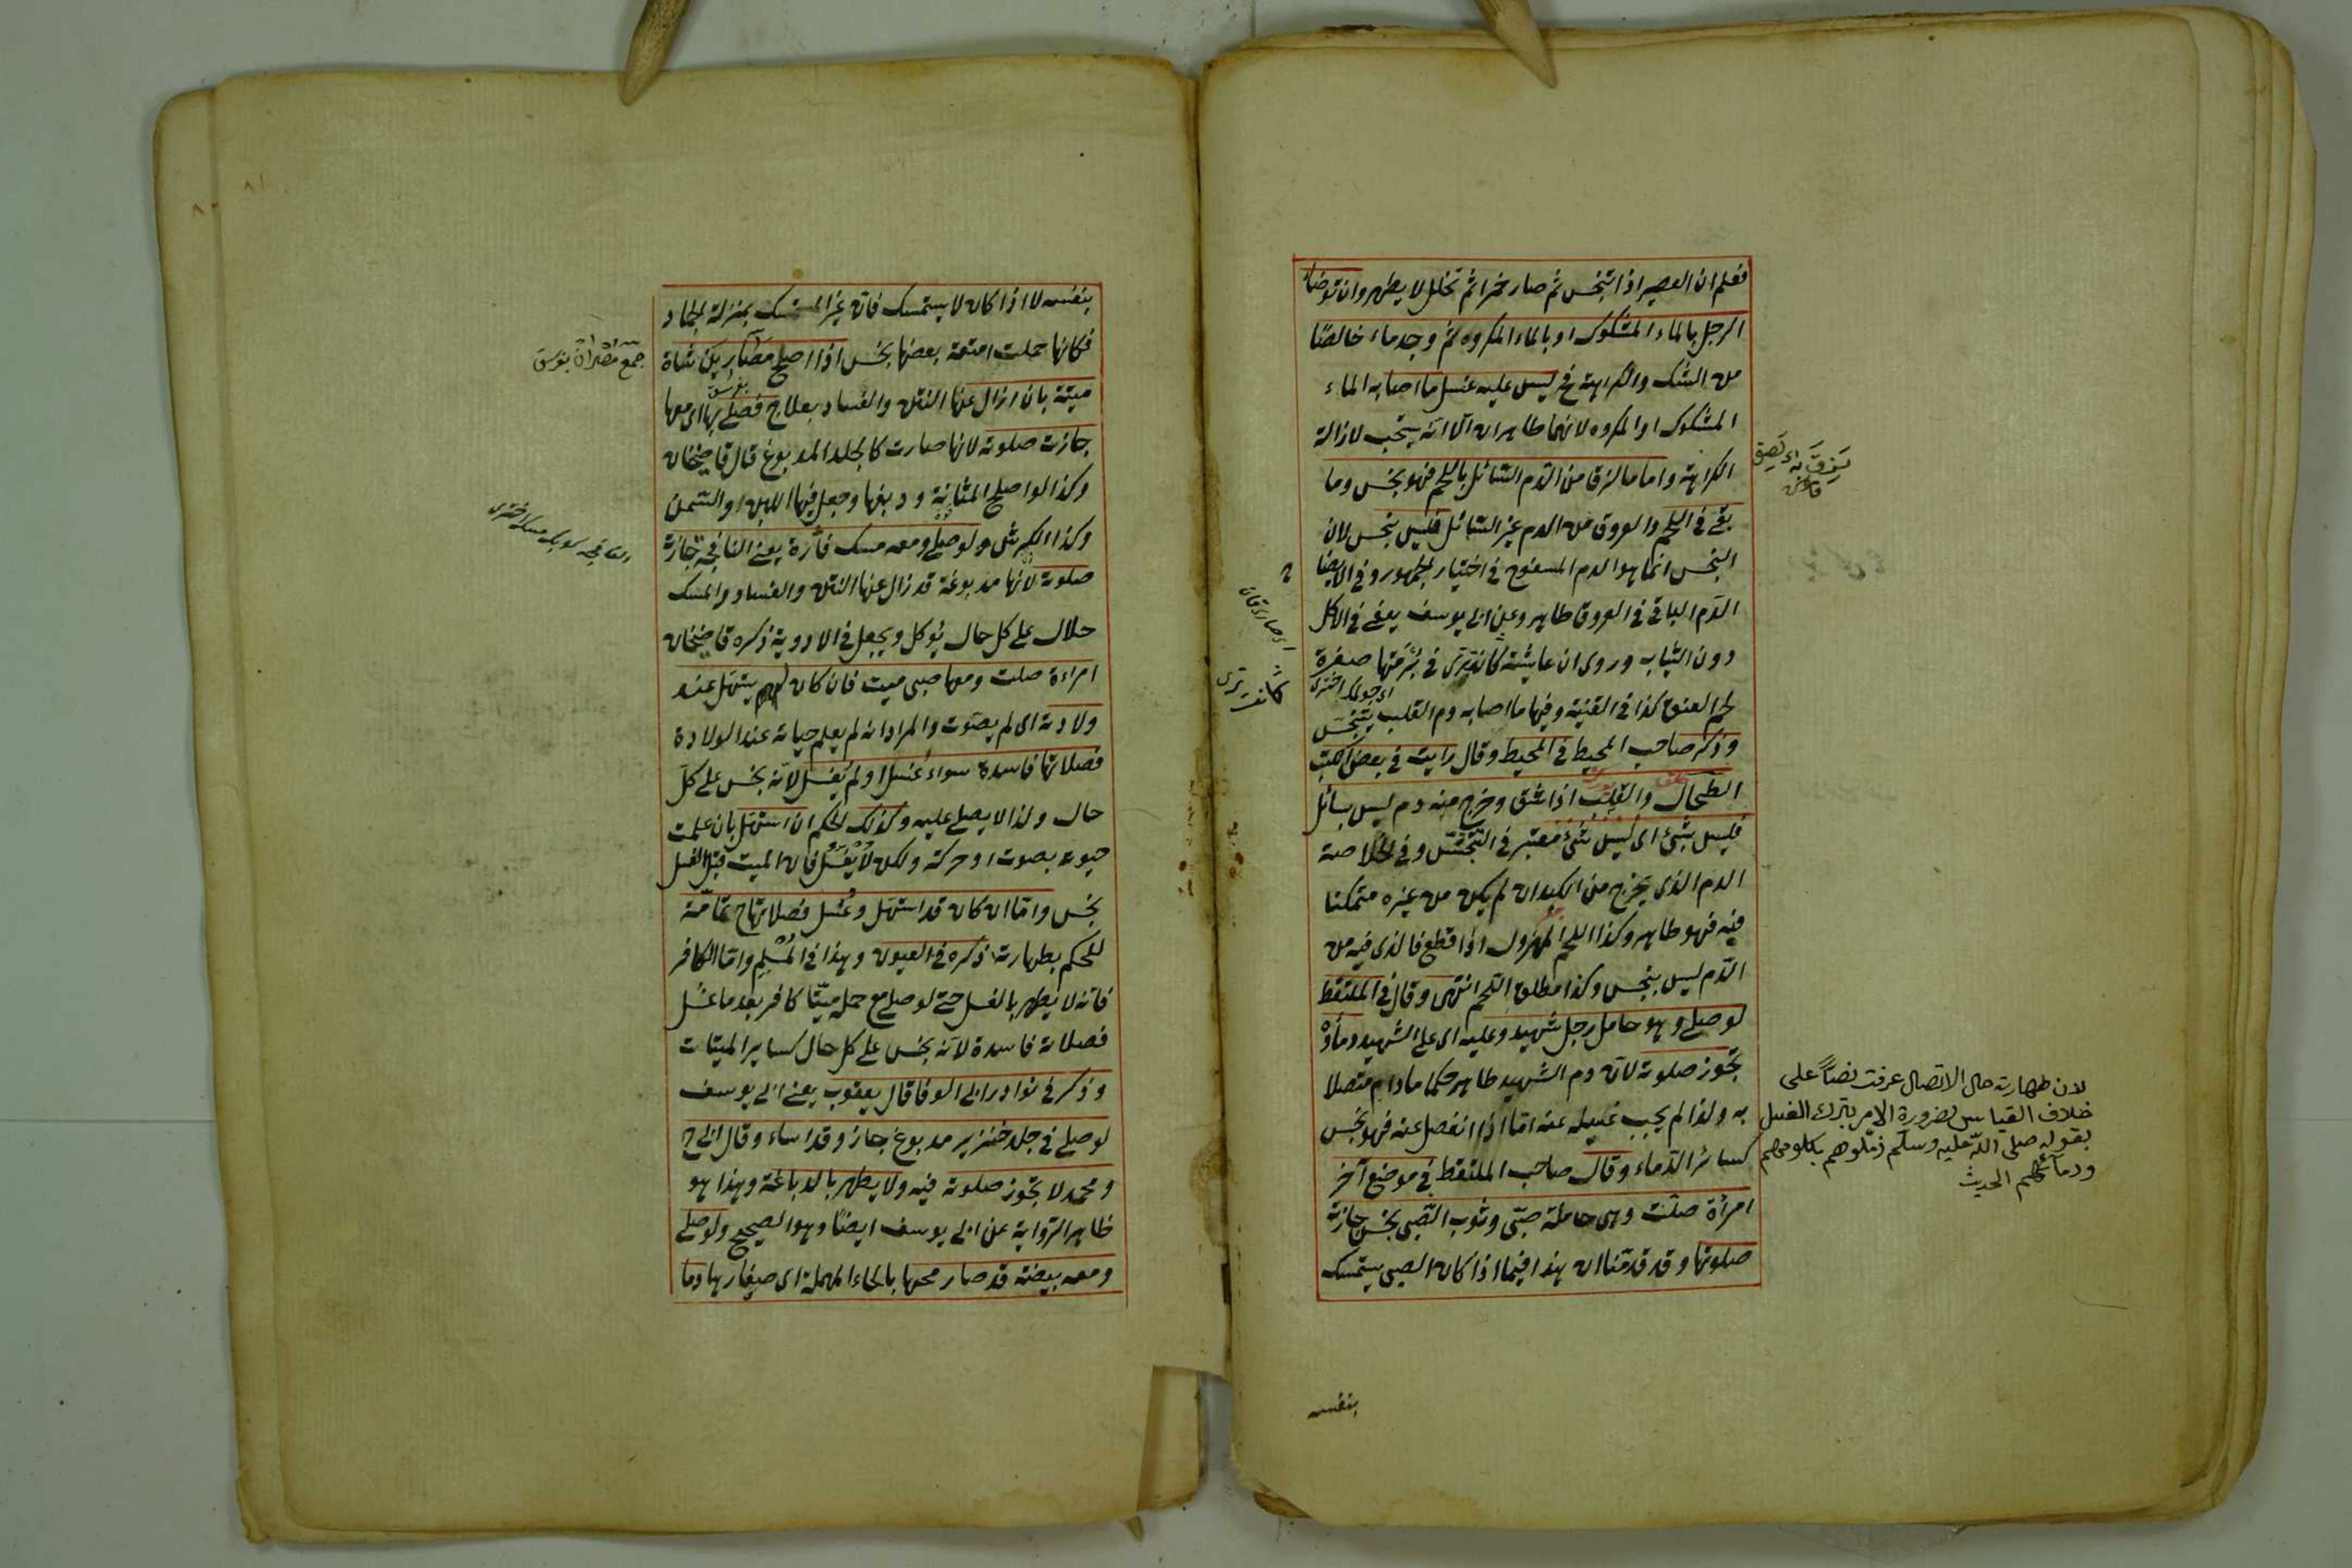 فعلم ان العصير اذا تنجس ثم صار خمرا ثم تخلل لا يطهر وان توضأ
الرجل بالماء المشكوك او بالماء المكروه ثم وجد ماء خالصًا
من الشك والكراهة فح ليس عليه غسل ما اصابه الماء
المشكوك او المكروه لانهما طاهران الا انه يستحب لازالة
الكراهة واما ما لزق من الدم السائل باللحم فهو نجس وما
بقى فى اللحم والعروق من الدم غير السائل فليس بنجس لان
النجس انما هو الدم المسفوح فى اختيار الجمهور وفى
الدم الباقى فى العروق طاهر وعن ابى يوسف يعفى فى الاكل
دون الثياب وروى ان عايشة كانت ترى فى برمتها صفرة
لحم العنق كذا فى القنية وفيها ما اصابه دم القلب يتنجس
وذكر صاحب المحيط فى المحيط وقال رايت فى بعض الكتب
الطحال والقلب اذا شق وخرج منه دم ليس بسائل
فليس بشئ اى ليس بشئ معتبر فى التنجس وفى الخلاصة
الدم الذى يخرج من الكبد ان لم يكن من غيره متمكنا
فيه فهو طاهر وكذا اللحم المهزول اذا قطع فالذى فيه من
الدم ليس بنجس وكذا مطلق اللحم انتهى وقال فى الملتقط
لو صلى وهو حامل رجل شهيد وعليه اى على الشهيد دماؤه
تجوز صلوته لان دم الشهيد طاهر حكما ما دام متصلا
به ولذا لم يجب غسله عنه اما اذا انفصل عنه فهو نجس
كسائر الدماء وقال صاحب الملتقط فى موضع آخر
امرأة صلت وهى حاملة صبى وثوب الصبى نجس جازت
صلوتها وقد قدمنا ان هذا فيما اذا كان الصبى يستمسك
لان طهارته حال الاتصال عرفت نصاً على
خلاف القياس لضرورة الامر بترك الغسل
بقوله صلى الله عليه وسلم زملوهم بكلومهم
ودمائهم الحديث
كانت ترى
بنفسه
بنفسه لا اذا كان لا يستمسك فان غير المستمسك بمنزلة الجماد
فكانها حملت امتعة بعضها نجس اذا اصلح مصارين شاة
ميتة بان ازال عنها النتن والفساد بعلاج فصلى بها اى معها
جازت صلوته لانها صارت كالجلد المدبوغ قال قاضيخان
وكذا لو اصلح المثانة ودبغها وجعل فيها اللبن او السمن
وكذا الكرش ولو صلى ومعه مسك فأرة يعنى النافجة جازت
صلوته لانها مدبوغة قد زال عنها النتن والفساد والمسك
حلال على كل حال يؤكل ويجعل فى الادوية ذكره قاضيخان
امراءة صلت ومعها صبى ميت فان كان لم يستهل عند
ولادته اى لم يصوت والمراد انه لم يعلم حياته عند الولادة
فصلاتها فاسدة سواء غسل او لم يغسل لانه نجس على كل
حال ولذا لا يصلى عليه وكذلك الحكم ان استهل بان علمت
حيوته بصوت او حركة ولكن لم يغسل فان الميت قبل الغسل
نجس واما ان كان قد استهل وغسل فصلاتها تامة
للحكم بطهارته ذكره فى العيون وهذا فى المسلم واما الكافر
فانه لا يطهر بالغسل حتى لو صلى مع حمل ميتا كافر بعد ما غسل
فصلاته فاسدة لانه نجس على كل حال كساير الميتات
وذكر فى نوادر ابى الوفا قال يعقوب يعنى ابى يوسف
لو صلى فى جلد خنزير مدبوغ جاز وقد اساء وقال ابى ح
ومحمد لا تجوز صلوته فيه ولا يطهر بالدباغة وهذا هو
ظاهر الرواية عن ابى يوسف ايضا وهو الصحيح ولو صلى
ومعه بيضة قد صار محها بالحاء المهملة اى صفارها دما